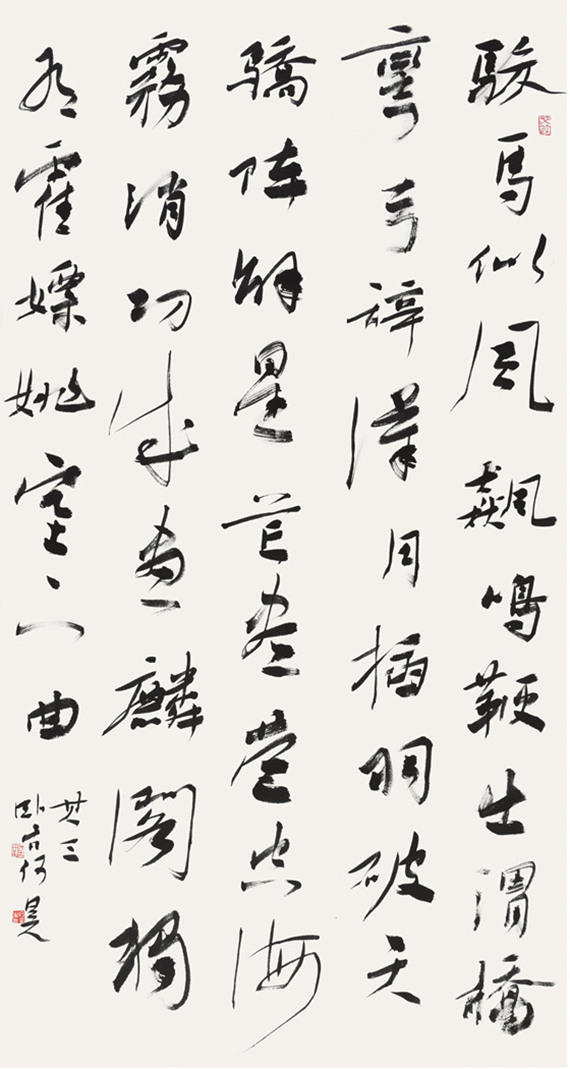 駿馬似風飆鳴鞭出渭橋
彎弓辭漢月插羽破天
驕陣解星芒盡營空海
霧消功成畫麟閣獨
有霍嫖姚塞下曲
其三